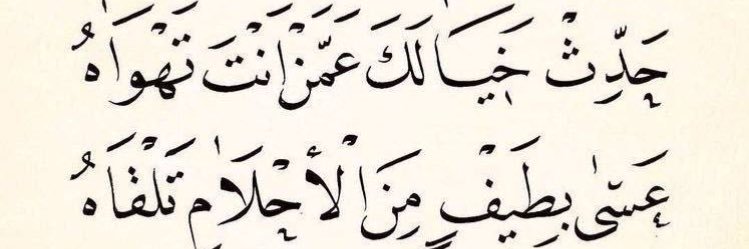 حَدِّثْ خَيَالَكَ عَمَّنْ اَنْتَ تَهْوَاهُ
عَسَىٰ بِطَيْفٍ مِنَ الْأَحْلَامِ تَلْقَاهُ